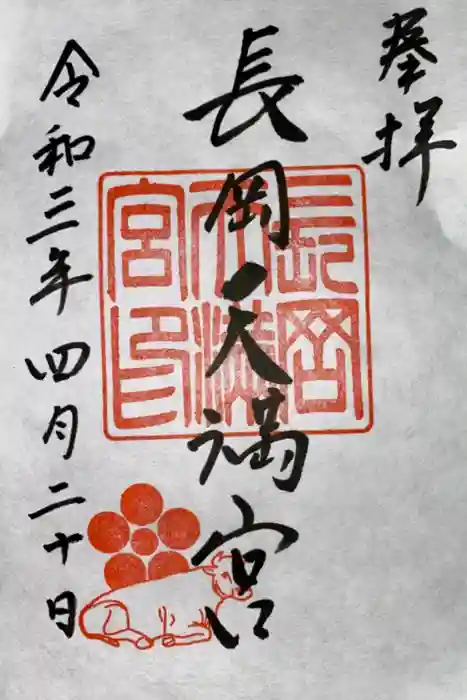 奉拝
長岡天満宮
令和三年四月二十日
長岡
天満
宮印